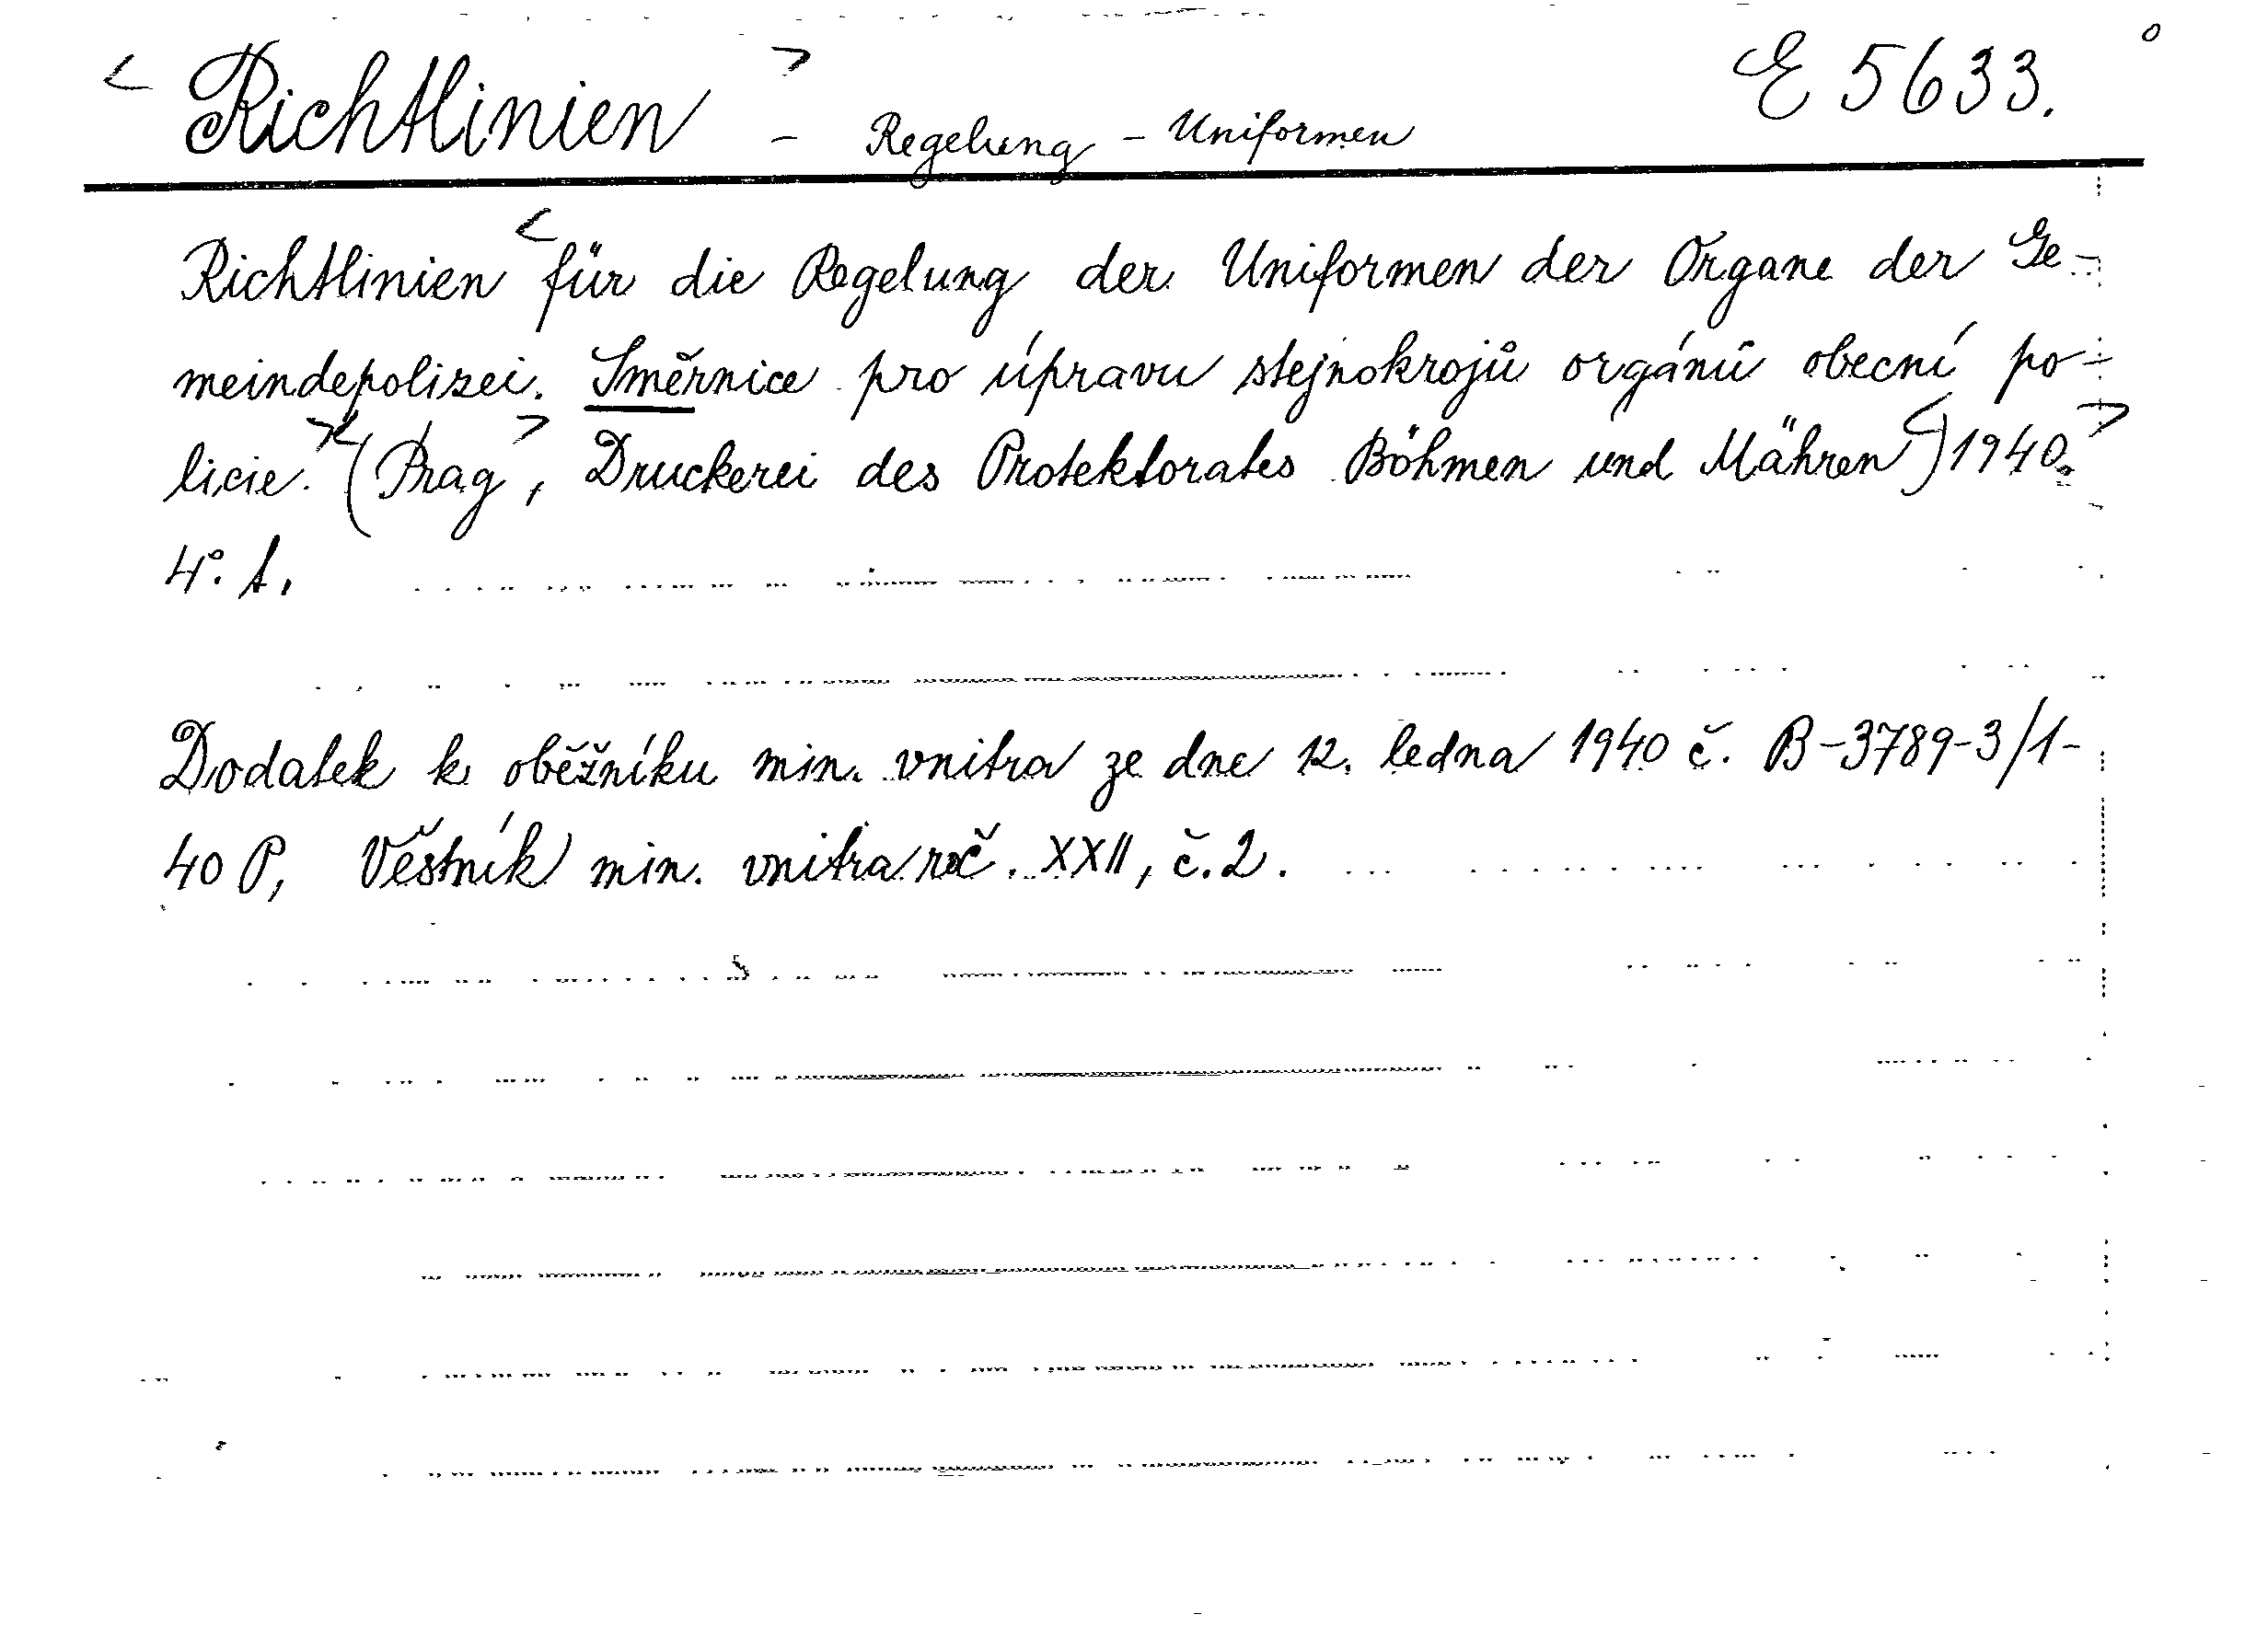 < Richtlinien > - Regelung - Uniformen E 5633.
Richtlinien < für die Regelung der Uniformen der Organe der Ge-
meindepolizei. Směrnice pro úpravu stejnokrojů orgánů obecní po-
licie. > < (Prag >, Druckerei des Protektorates Böhmen und Mähren <) 1940. >
4°. t.
Dodatek k oběžníku min. vnitra ze dne 12. ledna 1940 č. B-3789-3/1-
40 P, Věstník min. vnitra roč. XXII, č. 2.